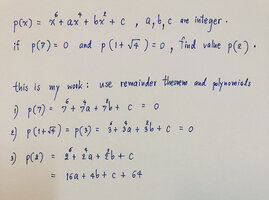 p(x) = x⁶ + ax⁴ + bx² + c , a, b, c are integer.
if p(7) = 0 and p(1+√4) = 0, find value p(2).
this is my work : use remainder theorem and polynomials
1) p(7) = 7⁶ + 7⁴a + 7²b + c = 0
2) p(1+√4) = p(3) = 3⁶ + 3⁴a + 3²b + c = 0
3) p(2) = 2⁶ + 2⁴a + 2²b + c
= 16a + 4b + c + 64